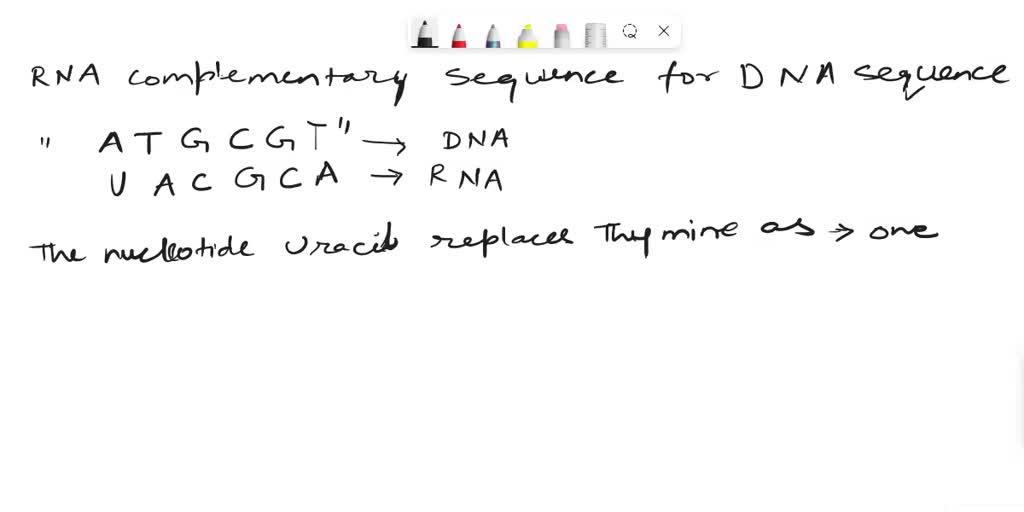 RNA complementary sequence for DNA sequence
" ATGCGT" → DNA
UACGCA → RNA
The nucleotide uracil replaces Thymine as → one